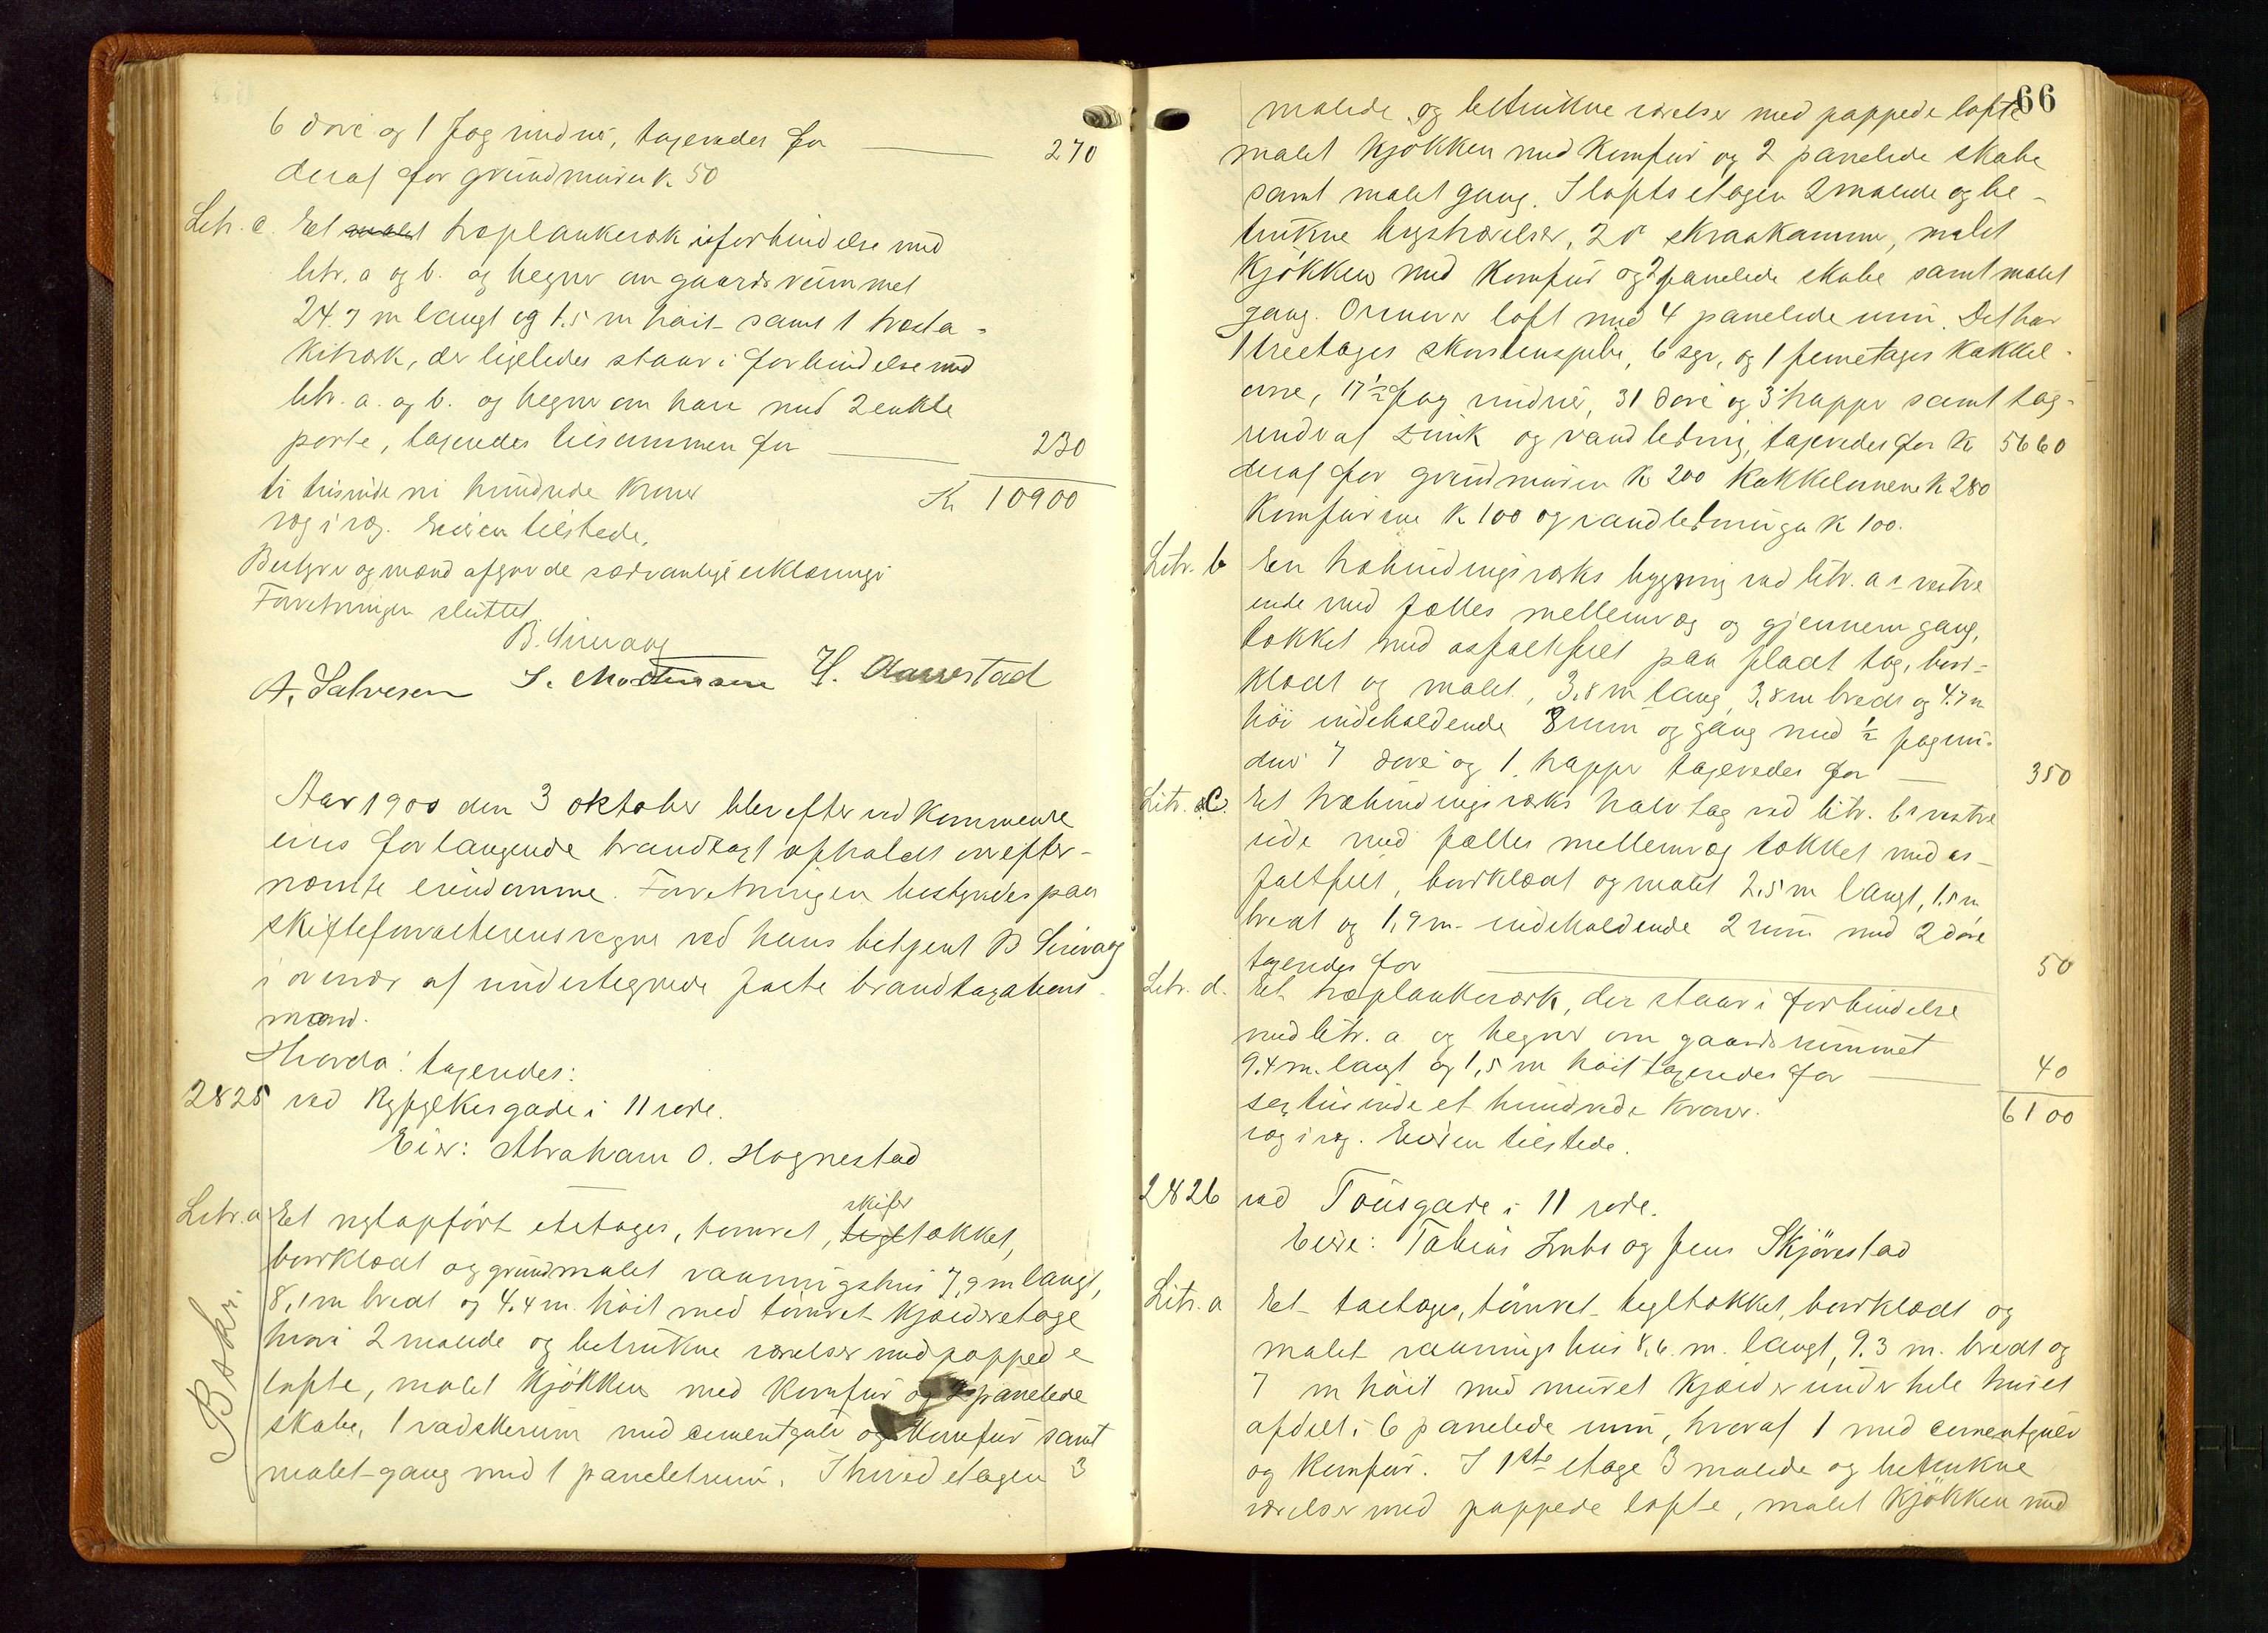 6 døre og 1 fag vinduer, taxeredes for 270
deraf for grundmuren K. 50
Litr. c. Et malet træplankeværk i forbindelse med
litr. a og b. og hegner om gaardsrummet
24.7 m langt og 1.5 m høit samt 1 træsta-
kitværk, der ligeledes staar i forbindelse med
litr. a. og b. og hegner om have med 2 enkle
porte, taxeredes tilsammen for 230
ti tusinde ni hundrede kroner Kr 10900
væg i væg. Eieren tilstede.
Bestyrer og mænd afgav de sædvanlige erklæringer
Forretningen sluttet.
B. Sirevaag
A. Salvesen S. Mortensen H. Haavestad
Aar 1900 den 3 oktober blev efter vedkommende
eiers forlangende brandtaxt afholdt over efter-
nævnte eiendomme. Forretningen bestyredes paa
skifteforvalterens vegne ved hans betjent B Sirevaag
i overvær af undertegnede faste brandtaxations-
mænd.
Hvorda: taxeredes:
2825 ved Ryfylkesgade i 11 rode.
Eier: Abraham O. Hognestad
Litr. a Et nyt opført etetages, tømret, tegltækket, skifer
bordklædt og grundmalet vaaningshus 7,9 m langt,
8,1 m bredt og 4,4 m. høit med tømret kjælderetage
hvori 2 malede og betrukne værelser med pappede
lofte, malet kjøkken med komfur og 2 panelede
skabe, 1 vadskerum med cementgulv og komfur samt
malet gang med 1 paneletrum. I hovedetagen 3
Beskr.
66
malede og betrukne værelser med pappede lofte
malet kjøkken med komfur og 2 panelede skabe
samt malet gang. I loftsetagen 2 malede og be-
trukne kvistværelser, 2 skraakammer, malet
kjøkken med komfur og 2 panelede skabe samt malet
gang. Ovenover loft med 4 panelede rum. Det har
1 treetages skorstenspibe, 6 og 1 femetages kakkel-
ovne, 17 1/2 fag vinduer, 31 døre og 3 trapper samt tag-
render af zink og vandledning, taxeredes for K 5660
deraf for grundmuren K 200 Kakkelovnene K 280
Komfurene K 100 og vandledningen K 100.
Litr. b En træbindingsværks bygning ved litr. a's vestre
ende med fælles mellemvæg og gjennemgang,
tækket med asfaltfilt paa pladt tag, bord-
klædt og malet, 3,8 m lang, 3,8 m bred og 4.7 m
høi indeholdende 8 rum og gang med 1/2 fag vin-
duer 7 døre og 1 trappe taxeredes for 350
Litr. c. Et træbindingsværks halvtag ved litr. b's vestre
side med fælles mellemvæg tækket med as-
faltfilt, bordklædt og malet 2,5 m langt, 1.5 m
bredt og 1,9 m. indeholdende 2 rum med 2 døre
taxeredes for 50
Litr. d. Et træplankeværk, der staar i forbindelse
med litr. a og hegner om gaardsrummet
9.4 m. langt og 1,5 m høit taxeredes for 40
sex tusinde et hundrede kroner. 6100
væg i væg. Eieren tilstede.
2826 ved Tousgade i 11 rode.
Eiere: Tobias og Jens Skjørestad
Litr. a Et toetages, tømret tegltækket, bordklædt og
malet vaaningshus 8,6. m. langt, 9.3 m. bredt og
7 m høit med muret kjælder under hele huset
afdelt i 6 panelede rum, hvoraf 1 med cementgulv
og komfur. I 1ste etage 3 malede og betrukne
værelser med pappede lofte, malet kjøkken med